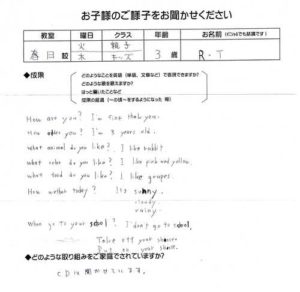 お子様のご様子をお聞かせください
教室 曜日 クラス 年齢 お名前(にCinCでも結構です)
春日校 火 木 親子 キッズ 3歳 R.T
◆成果
どのようなことを英語(単語、文章など)で表現できますか?
どのような歌を歌えますか?
ほっと驚いたことなど
成果の経過(〜の頃〜をするようになった 等)
How are you? I'm fine thank you.
How old are you? I'm 3 years old.
What animal do you like? I like rabbit
What color do you like? I like pink and yellow.
What food do you like? I like grapes.
How weather today? Its sunny.
cloudy
rainy.
When go to your school? I don't go to school.
Take off your shoes
Put on your shoes.
◆どのような取り組みをご家庭でされていますか?
CDは聞かせています。